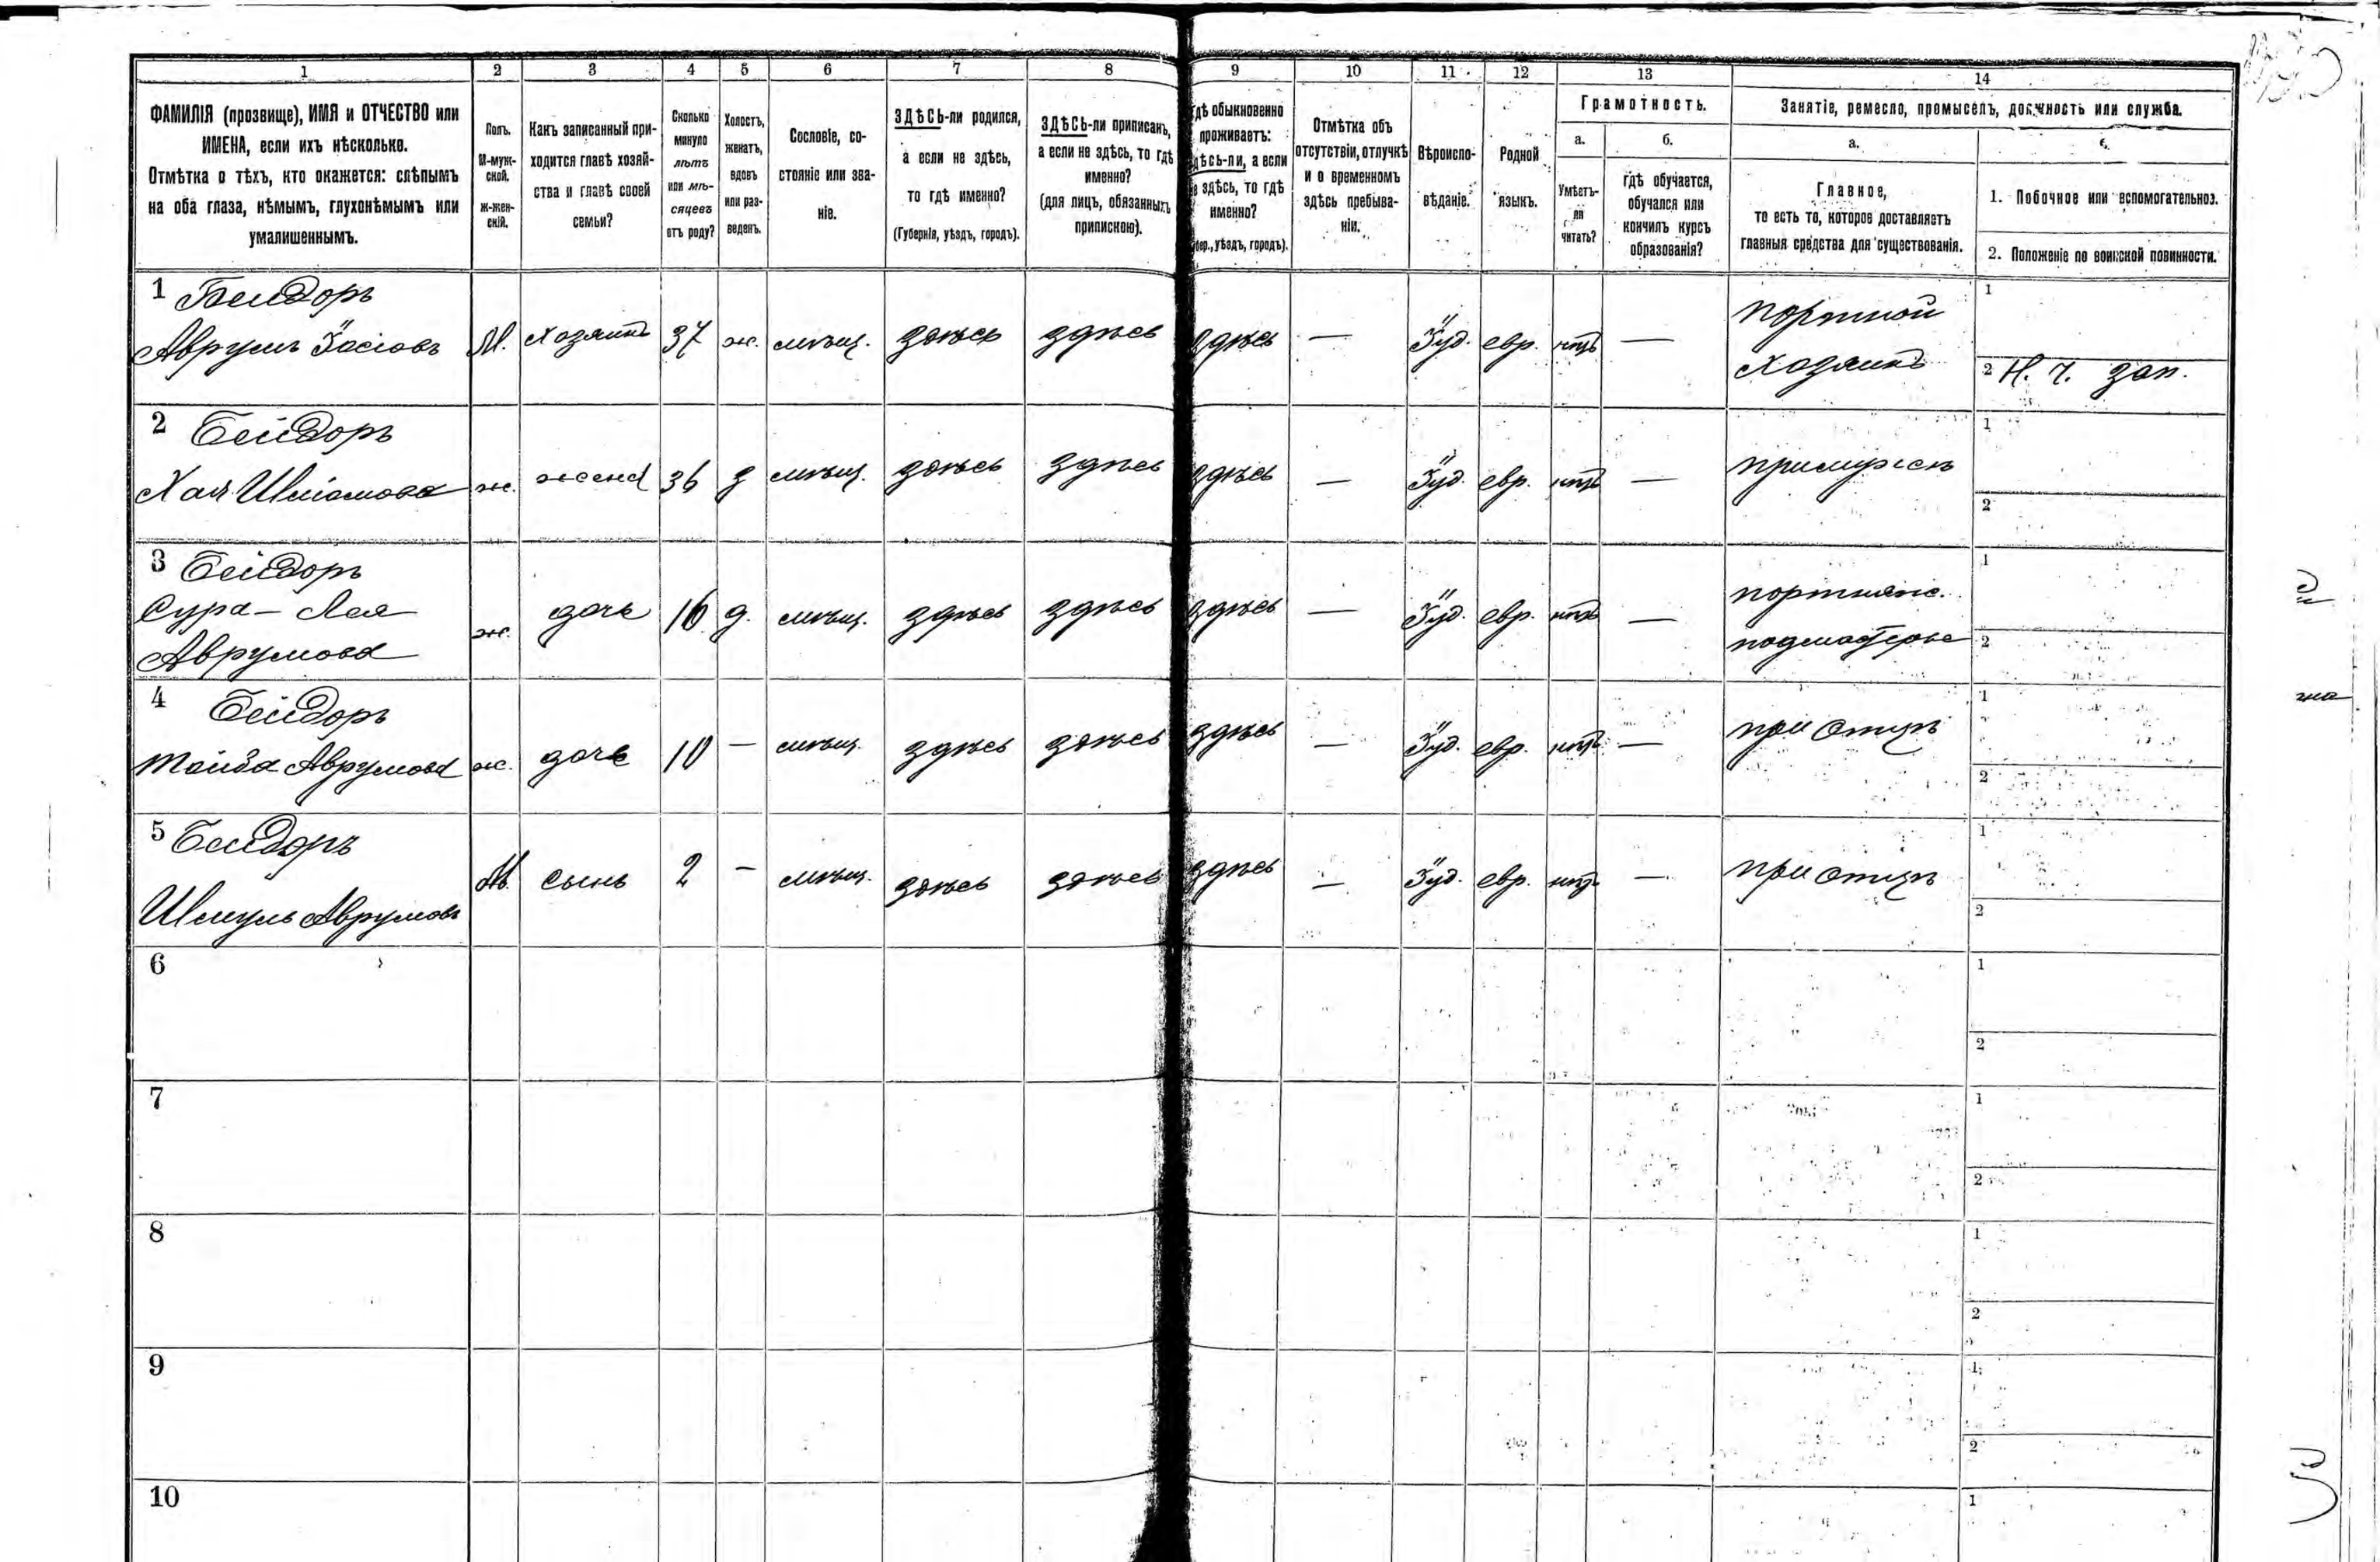 1 2 3 4 5 6 7 8 9 10 11 12 13 14
ФАМИЛІЯ (прозвище), ИМЯ и ОТЧЕСТВО или
ИМЕНА, если ихъ нѣсколько.
Отмѣтка о тѣхъ, кто окажется: слѣпымъ
на оба глаза, нѣмымъ, глухонѣмымъ или
умалишеннымъ.
Полъ.
М-муж-
ской.
Ж-жен-
скій.
Какъ записанный при-
ходится главѣ хозяй-
ства и главѣ своей
семьи?
Сколько
минуло
лѣтъ
или мѣ-
сяцевъ
отъ роду?
Холостъ,
женатъ,
вдовъ
или раз-
веденъ.
Сословіе, со-
стояніе или зва-
ніе.
ЗДѢСЬ-ли родился,
а если не здѣсь,
то гдѣ именно?
(Губернія, уѣздъ, городъ).
ЗДѢСЬ-ли приписанъ,
а если не здѣсь, то гдѣ
именно?
(для лицъ, обязанныхъ
припискою).
гдѣ обыкновенно
проживаетъ:
здѣсь-ли, а если
не здѣсь, то гдѣ
именно?
(Губер., уѣздъ, городъ).
Отмѣтка объ
отсутствіи, отлучкѣ
и о временномъ
здѣсь пребыва-
ніи.
Вѣроиспо-
вѣданіе.
Родной
языкъ.
Грамотность.
а.
Умѣетъ-
ли
читать?
б.
гдѣ обучается,
обучался или
кончилъ курсъ
образованія?
Занятіе, ремесло, промыселъ, должность или служба.
а.
Главное,
то есть то, которое доставляетъ
главныя средства для существованія.
б.
1. Побочное или вспомогательное.
2. Положеніе по воинской повинности.
1 Бейдоръ
Аврумъ Іосіовъ М. Хозяинъ 37 ж. мѣщ. здѣсь здѣсь здѣсь — Іуд. евр. нѣтъ — портной
хозяинъ
1
2 Н. Ч. зап.
2 Бейдоръ
Хая Шліомова ж. жена 36 з мѣщ. здѣсь здѣсь здѣсь — Іуд. евр. нѣтъ — при мужѣ
1
2
3 Бейдоръ
Сура-Лея
Аврумова ж. дочь 16 д. мѣщ. здѣсь здѣсь здѣсь — Іуд. евр. нѣтъ — портняж.
подмастерье
1
2
4 Бейдоръ
Тойба Аврумова ж. дочь 10 — мѣщ. здѣсь здѣсь здѣсь — Іуд. евр. нѣтъ — при отцѣ
1
2
5 Бейдоръ
Шмуль Аврумовъ М. сынъ 2 — мѣщ. здѣсь здѣсь здѣсь — Іуд. евр. нѣтъ — при отцѣ
1
2
6
1
2
7
1
2
8
1
2
9
1
2
10
1